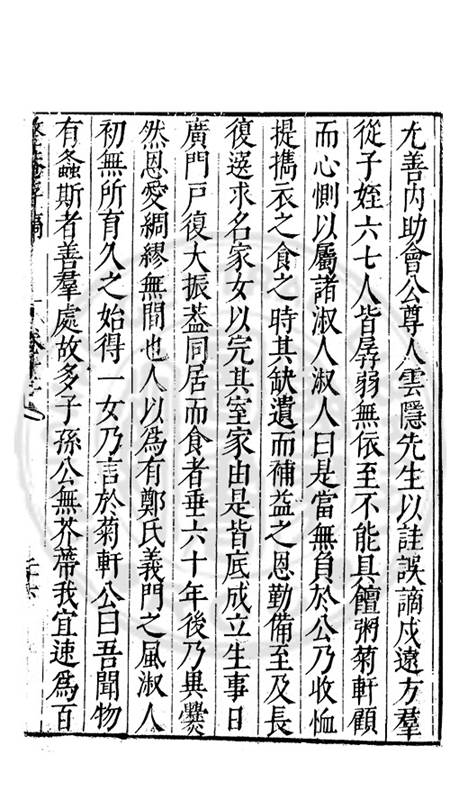 尤善內助會公尊人雲隱先生以詿誤謫戍遠方羣
從子姪六七人皆孱弱無依至不能具饘粥菊軒顧
而心惻以屬諸淑人淑人曰是當無負於公乃收恤
提攜衣之食之時其缺遺而補益之恩勤備至及長
復選求名家女以完其室家由是皆底成立生事日
廣門戶復大振葢同居而食者垂六十年後乃異爨
然恩愛綢繆無間也人以爲有鄭氏義門之風淑人
初無所有久之始得一女乃言於菊軒公曰吾聞物
有螽斯者善羣處故多子孫公無芥蔕我宜速爲百